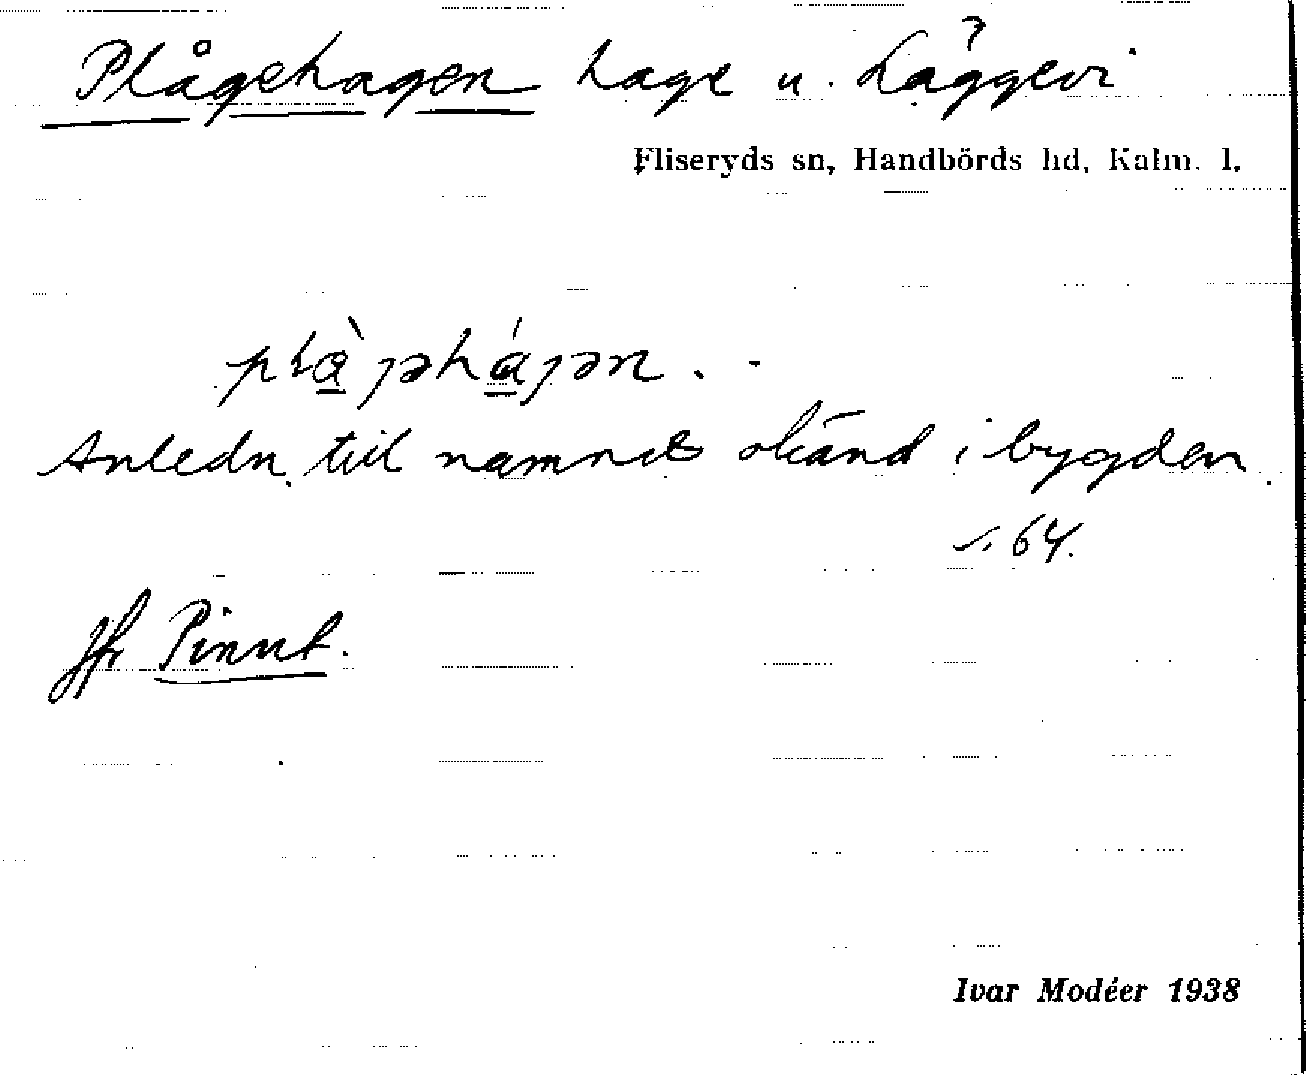 Plågehagen hage u. Läggevi
Fliseryds sn, Handbörds hd, Kalm. l.
Anledn. till namnet okänd i bygden.
s. 64.
Jfr Pinnt.
Ivar Modéer 1938